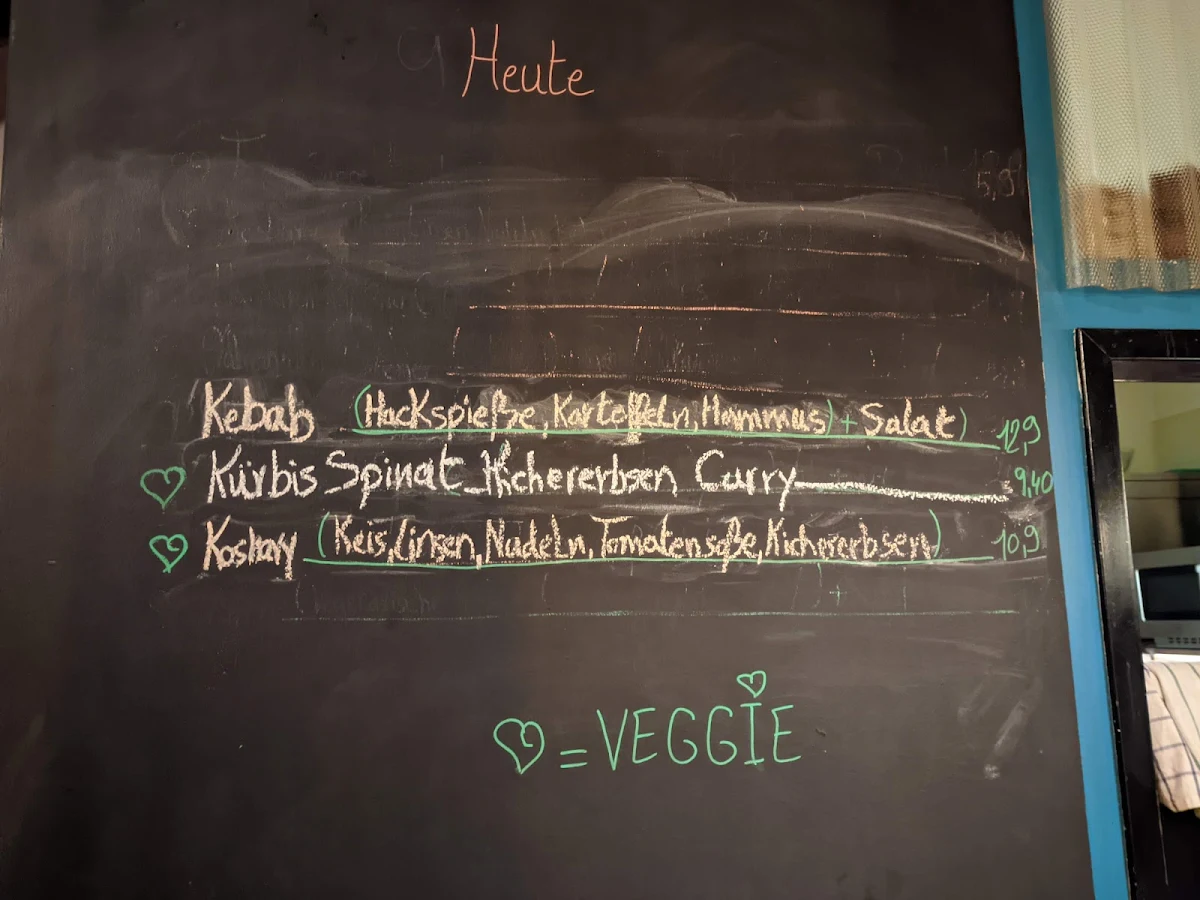 Heute
Kebab (Hackspieße, Kartoffeln, Hummus) + Salat) 12,9
Kürbis Spinat Kichererbsen Curry 9,40
Koshary (Reis, Linsen, Nudeln, Tomatensoße, Kichererbsen) 10,9
= VEGGIE